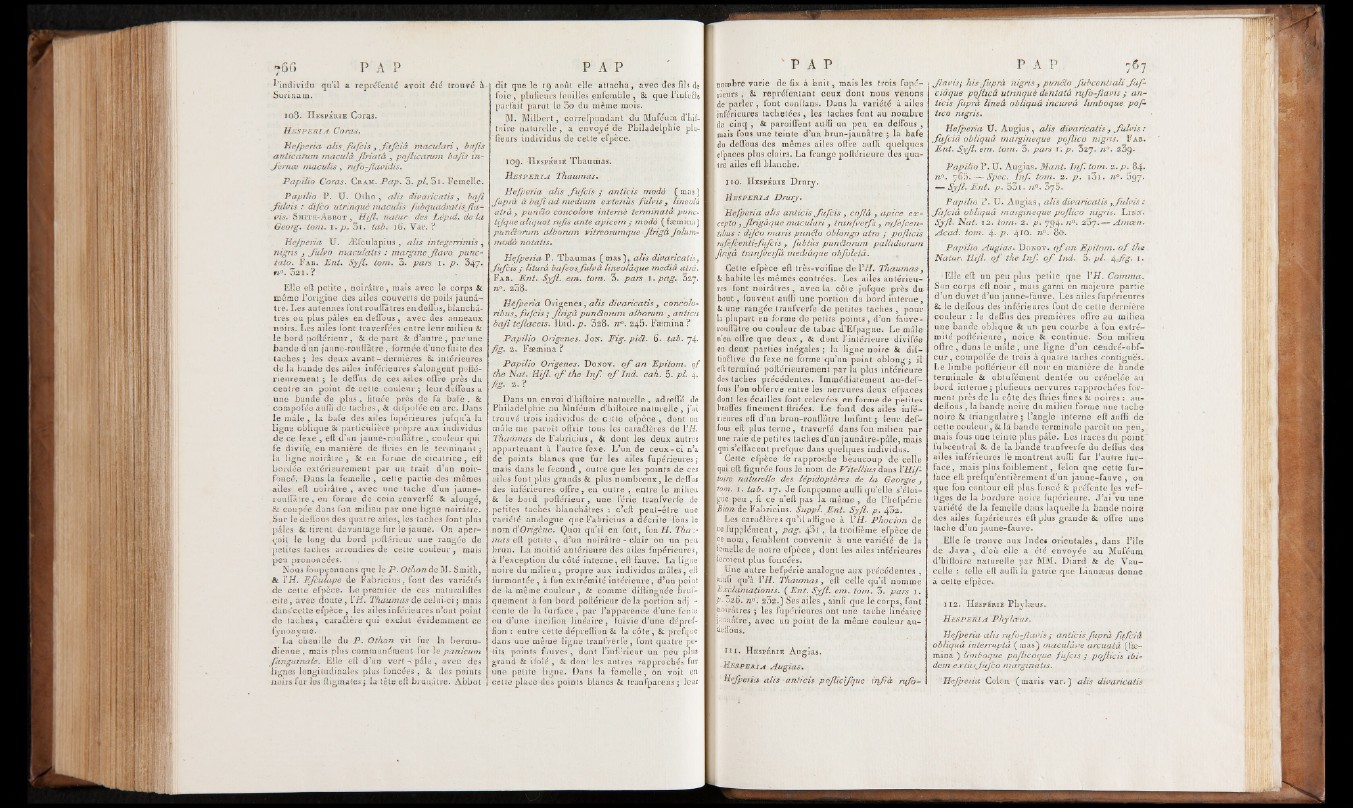 766 P A P
l'individu qu'il a représenté avoit été trouvé à
Surinam.
108. HESPÉRIE Coras.
HESPERIA Coras.
Hesperia alis fuscis, fasciâ maculari, basis
anticarum maculâ striatâ, posticarum basis in-
formæ maculis, rufo-flavidis.
Papilio Coras. CRAM. Pap. 3. pl. 31. Femelle.
Papilio P. U. Otho, alis divaricatis, basi
fulvis : disco utrinque maculis subquadratis fla-
vis. SMITH-ABBOT, Hist. natur. des Lépid. de la
Georg. tom. 1. p. 31. tab. 16. Var. ?
Hesperia U. Æsculapius, alis integerrimis,
nigris, fulvo maculatis : margine flavo punc-
tato. FAB. Ent. Syst. tom. 3. pars 1. p. 347.
n°. 321. ?
Elle est petite, noirâtre, mais avec le corps &
même l'origine des ailes couverts de poils jaunâ-
tre. Les antennes sont roussâtres en dessus, blanchâ-
tres ou plus pâles en dessous, avec des anneaux
noirs. Les ailes sont traversées entre leur milieu &
le bord postérieur, & de part & d'autre, par une
bande d'un jaune-roussâtre, formée d'une suite de
taches ; les deux avant-dernières & intérieures
de la bande des ailes inférieures s'alongent posté-
rieurement ; le dessus de ces ailes offre près du
centre un point de cette couleur ; leur dessous a
une bande de plus, située près de sa base, &
composée aussi de taches, & disposée en arc. Dans
le mâle, la base des ailes supérieures jusqu'à la
ligne oblique & particulière propre aux individus
de ce sexe, est d'un jaune-roussâtre, couleur qui
se divise en manière de stries en se terminant ;
la ligne noirâtre, & en forme de cicatrice, est
bordée extérieurement par un trait d'un noir-
foncé. Dans la femelle, cette partie des mêmes
ailes est noirâtre, avec une tache d'un jaune-
roussâtre, en forme de coin renversé & alongé,
& coupée dans son milieu par une ligne noirâtre.
Sur le dessous des quatre ailes, les taches sont plus
pâles & tirent davantage sur le jaune. On aper-
çoit le long du bord postérieur une rangée de
petites taches arrondies de cette couleur, mais
peu prononcées.
Nous soupçonnons que le P. Othon de M. Smith,
& l'H. Esculape de Fabricius, sont des variétés
de cette espèce. Le premier de ces naturalistes
cite, avec doute, l'H. Thaumas de celui-ci ; mais
dans cette espèce, les ailes inférieures n'ont point
de taches, caractère qui exclut évidemment ce
synonyme.
La chenille du P. Othon vit sur la bermu-
dienne, mais plus communément sur le panicum
sanguinale. Elle est d'un vert-pâle, avec des
lignes longitudinales plus foncées, & des points
noirs sur les stigmates ; la tête est brunâtre. Abbot
P A P
dit que le 19 août elle attacha, avec des fils de
soie, plusieurs feuilles ensemble, & que l'insecte
parfait parut le 30 du même mois.
M. Milbert, correspondant du Muséum d'his-
toire naturelle, a envoyé de Philadelphie plu-
sieurs individus de cette espèce.
109. HESPÉRIE Thaumas.
HESPERIA Thaumas.
Hesperia alis fuscis ; anticis modò (mas)
suprà à basi ad medium externis fulvis, lineolâ
atrâ, puncto concolore internè terminatâ punc-
tisque aliquot rufis ante apicem ; modò (fœmina)
punctorum alborum vitreorumque strigâ solum-
modò notatis.
Hesperia P. Thaumas (mas), alis divaricatis,
fuscis ; liturâ baseos fulvâ lineolâque mediâ atrâ.
FAB. Ent. Syst. em. tom. 3. pars 1. pag. 327.
n°. 238.
Hesperia Origenes, alis divaricatis, concolo-
ribus, fuscis ; strigâ punctorum alborum, anticis
basi testaceis. Ibid. p. 328. n°. 245. Fœmina ?
Papilio Origenes. JON. Fig. pict. 6. tab. 74.
fig. 2. Fœmina ?
Papilio Origenes. DONOV. of an Epitom. of
the Nat. Hist. of the Ins. of Ind. cah. 5. pl. 4.
fig. 2. ?
Dans un envoi d'histoire naturelle, adressé de
Philadelphie au Muséum d'histoire naturelle, j'ai
trouvé trois individus de cette espèce, dont un
mâle me paroît offrir tous les caractères de l'H.
Thaumas de Fabricius, & dont les deux autres
appartenant à l'autre sexe. L'un de ceux-ci n'a
de points blancs que sur les ailes supérieures ;
mais dans le second, outre que les points de ces
ailes sont plus grands & plus nombreux, le dessous
des inférieures offre, en outre, entre le milieu
& le bord postérieur, une série transverse de
petites taches blanchâtres : c'est peut-être une
variété analogue que Fabricius a décrite sous le
nom d'Origène. Quoi qu'il en soit, son H. Thau-
mas est petite, d'un noirâtre-clair ou un peu
brun. La moitié antérieure des ailes supérieures,
à l'exception du côté interne, est fauve. La ligne
noire du milieu, propre aux individus mâles, est
surmontée, à son extrémité intérieure, d'un point
de la même couleur, & comme distinguée brus-
quement à son bord postérieur de la portion adja-
cente de la surface, par l'apparence d'une fente
ou d'une incision linéaire, suivie d'une dépres-
sion : entre cette dépression & la côte, & presque
dans une même ligne transverse, sont quatre pe-
tits points fauves, dont l'intérieur un peu plus
grand & isolé, & dont les autres rapprochés sur
une petite ligne. Dans la femelle, on voit en
cette place des points blancs & transparens ; leur
P A P
nombre varie de six à huit, mais les trois supé-
rieurs, & représentant ceux dont nous venons
de parler, sont constans. Dans la variété à ailes
inférieures tachetées, les taches sont au nombre
de cinq, & paroissent aussi un peu en dessous,
mais sous une teinte d'un brun-jaunâtre ; la base
du dessous des mêmes ailes offre aussi quelques
espaces plus clairs. La frange postérieure des qua-
tre ailes est blanche.
110. HESPÉRIE Drury.
HESPERIA Drury.
Hesperia alis anticis fuscis, costâ, apice ex-
cepto, strigâque maculari, transversâ, rufescen-
tibus : disco maris puncto oblongo atro ; posticis
rufescenti-fuscis, subtus punctorum pallidiorum
strigâ transversâ mediâque obsoletâ.
Cette espèce est très-voisine de l'H. Thaumas,
& habite les mêmes contrées. Les ailes antérieu-
res sont noirâtres, avec la côte jusque près du
bout, souvent aussi une portion du bord interne,
& une rangée transverse de petites taches, pour
la plupart en forme de petits points, d'un fauve-
roussâtre ou couleur de tabac d'Espagne. Le mâle
n'en offre que deux, & dont l'intérieure divisée
en deux parties inégales ; la ligne noire & dis-
tinctive du sexe ne forme qu'un point oblong ; il
est terminé postérieurement par la plus intérieure
des taches précédentes. Immédiatement au-des-
sous l'on observe entre les nervures deux espaces
dont les écailles sont relevées en forme de petites
brosses finement striées. Le fond des ailes infé-
rieures est d'un brun-roussâtre luisant ; leur des-
sous est plus terne, traversé dans son milieu par
une raie de petites taches d'un jaunâtre-pâle, mais
qui s'effacent presque dans quelques individus.
Cette espèce se rapproche beaucoup de celle
qui est figurée sous le nom de Vitellius dans l'His-
toire naturelle des lépidoptères de la Georgie,
tom. 1. tab. 17. Je soupçonne aussi qu'elle s'éloi-
gne peu, si ce n'est pas la même, de l'hespérie
Bion de Fabricius. Suppl. Ent. Syst. p. 432.
Les caractères qu'il assigne à l'H. Phocion de
ce supplément, pag. 431, la troisième espèce de
ce nom, semblent convenir à une variété de la
femelle de notre espèce, dont les ailes inférieures
seroient plus foncées.
Une autre hespérie analogue aux précédentes,
ainsi qu'à l'H. Thaumas, est celle qu'il nomme
Exclamationis. (Ent. Syst. em. tom. 3. pars 1.
p. 326. n°. 232.) Ses ailes, ainsi que le corps, sont
noirâtres ; les supérieures ont une tache linéaire
jaunâtre, avec un point de la même couleur au-
dessous.
111. HESPÉRIE Augias.
HESPERIA Augias.
Hesperia alis anticis posticisque infrà rufo-
P A P 767
flavis ; his suprà nigris, puncto subcentrali fas-
ciâque posticâ utrinquè dentatâ rufo-flavis ; an-
ticis suprà lineâ obliquâ incurvâ limboque pos-
tico nigris.
Hesperia U. Augias, alis divaricatis, fulvis :
fasciâ obliquâ margineque postico nigris. FAB.
Ent. Syst. em. tom. 3. pars 1. p. 327. n°. 239.
Papilio P. U. Augias. Mant. Ins. tom. 2. p. 84.
n°. 765. — Spec. Ins. tom. 2. p. 131. n°. 597.
— Syst. Ent. p. 531. n°. 375.
Papilio P. U. Augias, alis divaricatis, fulvis :
fasciâ obliquâ margineque postico nigris. LINN.
Syst. Nat. 12. tom. 2. p. 794. n°. 257. — Amœn.
Acad. tom. 4. p. 410. n°. 80.
Papilio Augias. DONOV. of an Epitom. of the
Natur. Hist. of the Ins. of Ind. 5. pl. 4. fig. 1.
Elle est un peu plus petite que l'H. Comma.
Son corps est noir, mais garni en majeure partie
d'un duvet d'un jaune-fauve. Les ailes supérieures
& le dessous des inférieures sont de cette dernière
couleur : le dessus des premières offre au milieu
une bande oblique & un peu courbe à son extré-
mité postérieure, noire & continue. Son milieu
offre, dans le mâle, une ligne d'un cendré-obs-
cur, composée de trois à quatre taches contiguës.
Le limbe postérieur est noir en manière de bande
terminale & obtusément dentée ou crénelée au
bord interne ; plusieurs nervures rapprochées for-
ment près de la côte des stries fines & noires : au-
dessous, la bande noire du milieu forme une tache
noire & triangulaire ; l'angle interne est aussi de
cette couleur, & la bande terminale paroît un peu,
mais sous une teinte plus pâle. Les traces du point
subcentral & de la bande transverse du dessus des
ailes inférieures se montrent aussi sur l'autre sur-
face, mais plus foiblement, selon que cette sur-
face est presqu'entièrement d'un jaune-fauve, ou
que son contour est plus foncé & présente les ves-
tiges de la bordure noire supérieure. J'ai vu une
variété de la femelle dans laquelle la bande noire
des ailes supérieures est plus grande & offre une
tache d'un jaune-fauve.
Elle se trouve aux Indes orientales, dans l'île
de Java, d'où elle a été envoyée au Muséum
d'histoire naturelle par MM. Diard & de Vau-
celle : telle est aussi la patrie que Linnæus donne
à cette espèce.
112. HESPÉRIE Phylæus.
HESPERIA Phylæus.
Hesperia alis rufo-flavis ; anticis suprà fasciâ
obliquâ interruptâ (mas) maculâve arcuatâ (fœ-
mina) limboque posticoque fuscis ; posticis ibi-
dem extùs fusco marginatis.
Hesperia Colon (maris var.) alis divaricatis